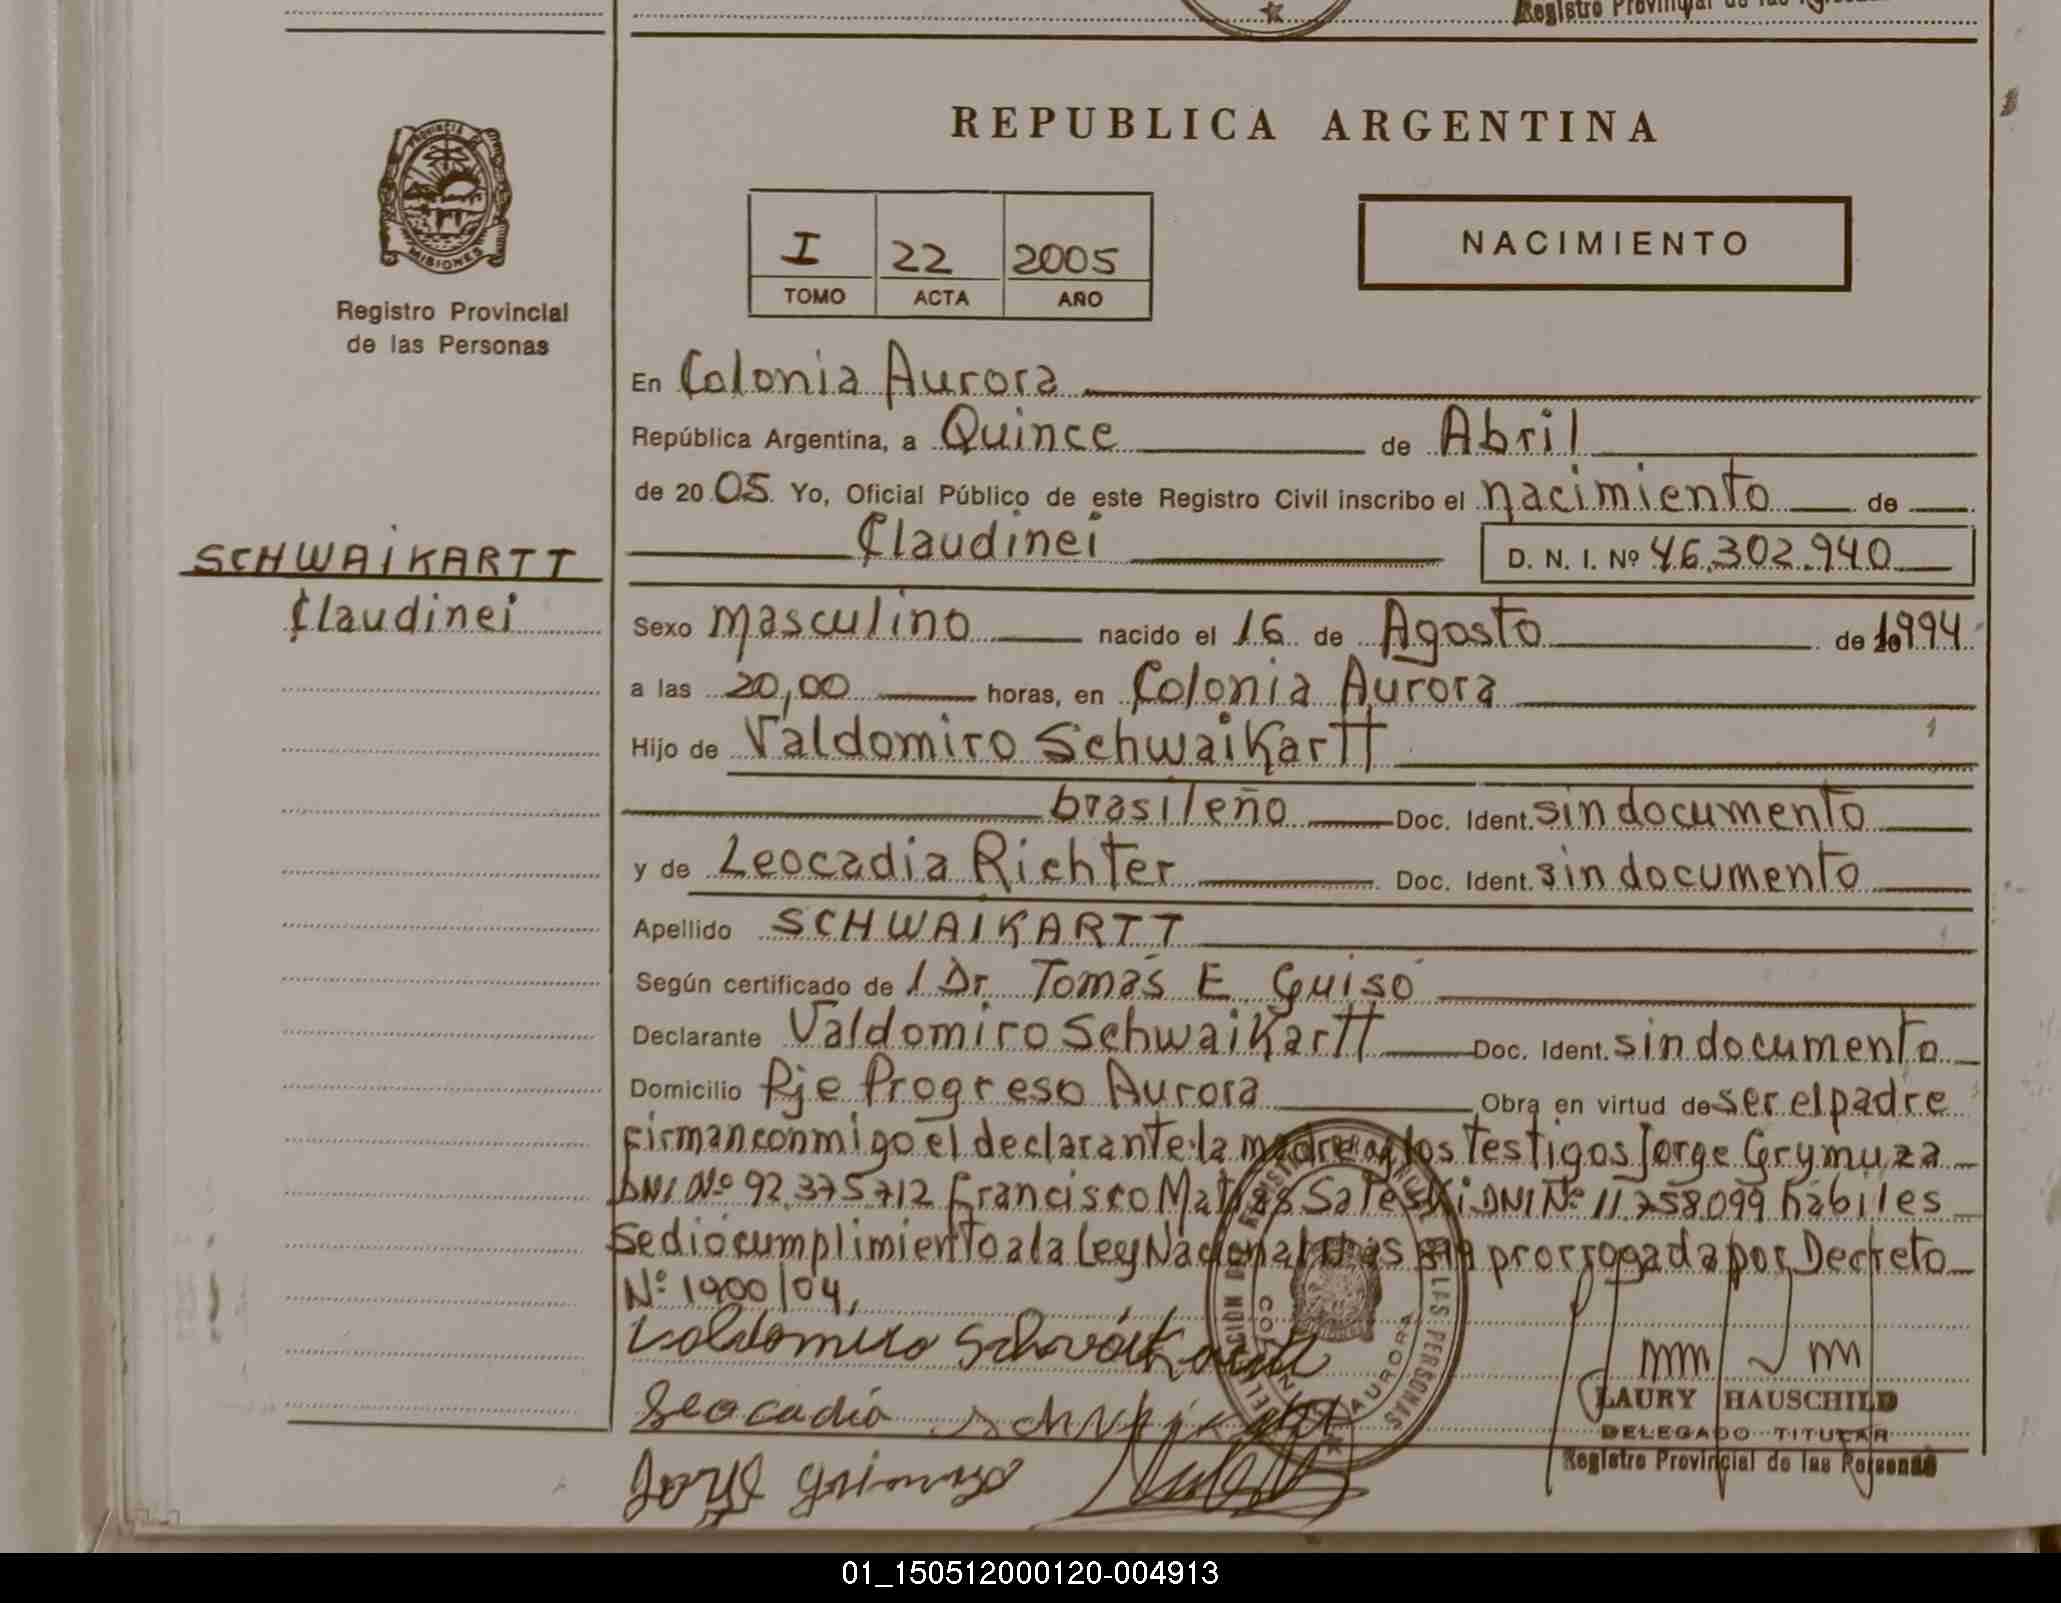 Registro Provincial de las
REPUBLICA ARGENTINA
PROVINCIA DE
MISIONES
Registro Provincial
de las Personas
I 22 2005
TOMO ACTA AÑO
NACIMIENTO
SCHWAIKARTT
Claudinei
En Colonia Aurora
República Argentina, a Quince de Abril
de 2005. Yo, Oficial Público de este Registro Civil inscribo el nacimiento de
Claudinei D. N. I. Nº 46.302.940
Sexo masculino nacido el 16 de Agosto de 1994
a las 20,00 horas, en Colonia Aurora
Hijo de Valdomiro Schwaikartt
brasileño Doc. Ident. sin documento
y de Leocadia Richter Doc. Ident. sin documento
Apellido SCHWAIKARTT
Según certificado de l Dr. Tomás E Guiso
Declarante Valdomiro Schwaikartt Doc. Ident. sin documento
Domicilio Pje Progreso Aurora Obra en virtud de ser el padre
Firman conmigo el declarante la madre los Testigos Jorge Grymuza
DNI Nº 92.375.712 Francisco Matias DNI Nº 11.758.099 hábiles
Se dió cumplimiento a la Ley Nacional prorrogada por Decreto
Nº 1900/04,
Valdomiro Schwaikartt
Leocadia
Jorge
COLONIA AURORA
LAS PERSONAS
LAURY HAUSCHILD
DELEGADO TITULAR
Registro Provincial de las Personas
01_150512000120-004913